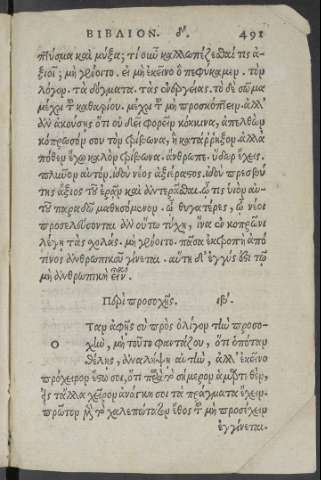 ΒΙΒΛΙΟΝ. δʹ. 491
πῦσμα καὶ μύξα; τί οὖν καλλωπίζεσθαί τις ἀ-
ξιοῖ; μὴ γένοιτο. εἰ μὴ ἐκεῖνο ὃ πεφύκαμεν. τὸν
λόγον. τὰ δόγματα. τὰς ἐνεργείας. τὸ δὲ σῶμα
μέχρι τοῦ καθαρίου. μέχρι τοῦ μὴ προσκόπτειν. ἀλλ'
ἂν ἀκούσῃς ὅτι οὐ δεῖ φορεῖν κόκκινα, ἀπελθὼν
κόπρωσόν σου τὸν τρίβωνα, ἢ κατάρρηξον ἀλλὰ
πόθεν ἔχω καλὸν τρίβωνα. ἄνθρωπε. ὕδωρ ἔχεις.
πλῦνον αὐτόν. ἰδοὺ νέος ἀξιέραστος. ἰδοὺ πρεσβύ
της ἄξιος τοῦ ἐρᾶν καὶ ἀντερᾶσθαι. ᾧ τις υἱὸν αὐ-
τοῦ παραδῷ μαθησόμενον. ᾧ θυγατέρες, ᾧ νέοι
προσελεύσονται ἂν οὕτω τύχῃ, ἵνα ἐν κοπρῶνι
λέγῃ τὰς σχολάς. μὴ γένοιτο. πᾶσα ἐκτροπὴ ἀπό
τινος ἀνθρωπικοῦ γίνεται. αὕτη δ' ἐγγύς ἐστι τῷ
μὴ ἀνθρωπικὴ εἶναι.
Περὶ προσοχῆς. ιβʹ.
Ὅταν ἀφῇς σὺ πρὸς ὀλίγον τὴν προσο-
χὴν, μὴ τοῦτο φαντάζου, ὅτι ὁπόταν
θέλῃς, ἀναλήψῃ αὐτὴν, ἀλλ' ἐκεῖνο
πρόχειρον ἔστω σοι, ὅτι παρὰ τὸ σήμερον ἁμαρτηθέν,
εἰς τἄλλα χεῖρον ἀνάγκη σοι τὰ πράγματα ἔχειν.
πρῶτον μὲν τὸ χαλεπώτατον ἔθος τοῦ μὴ προσέχειν
ἐγγίνεται.